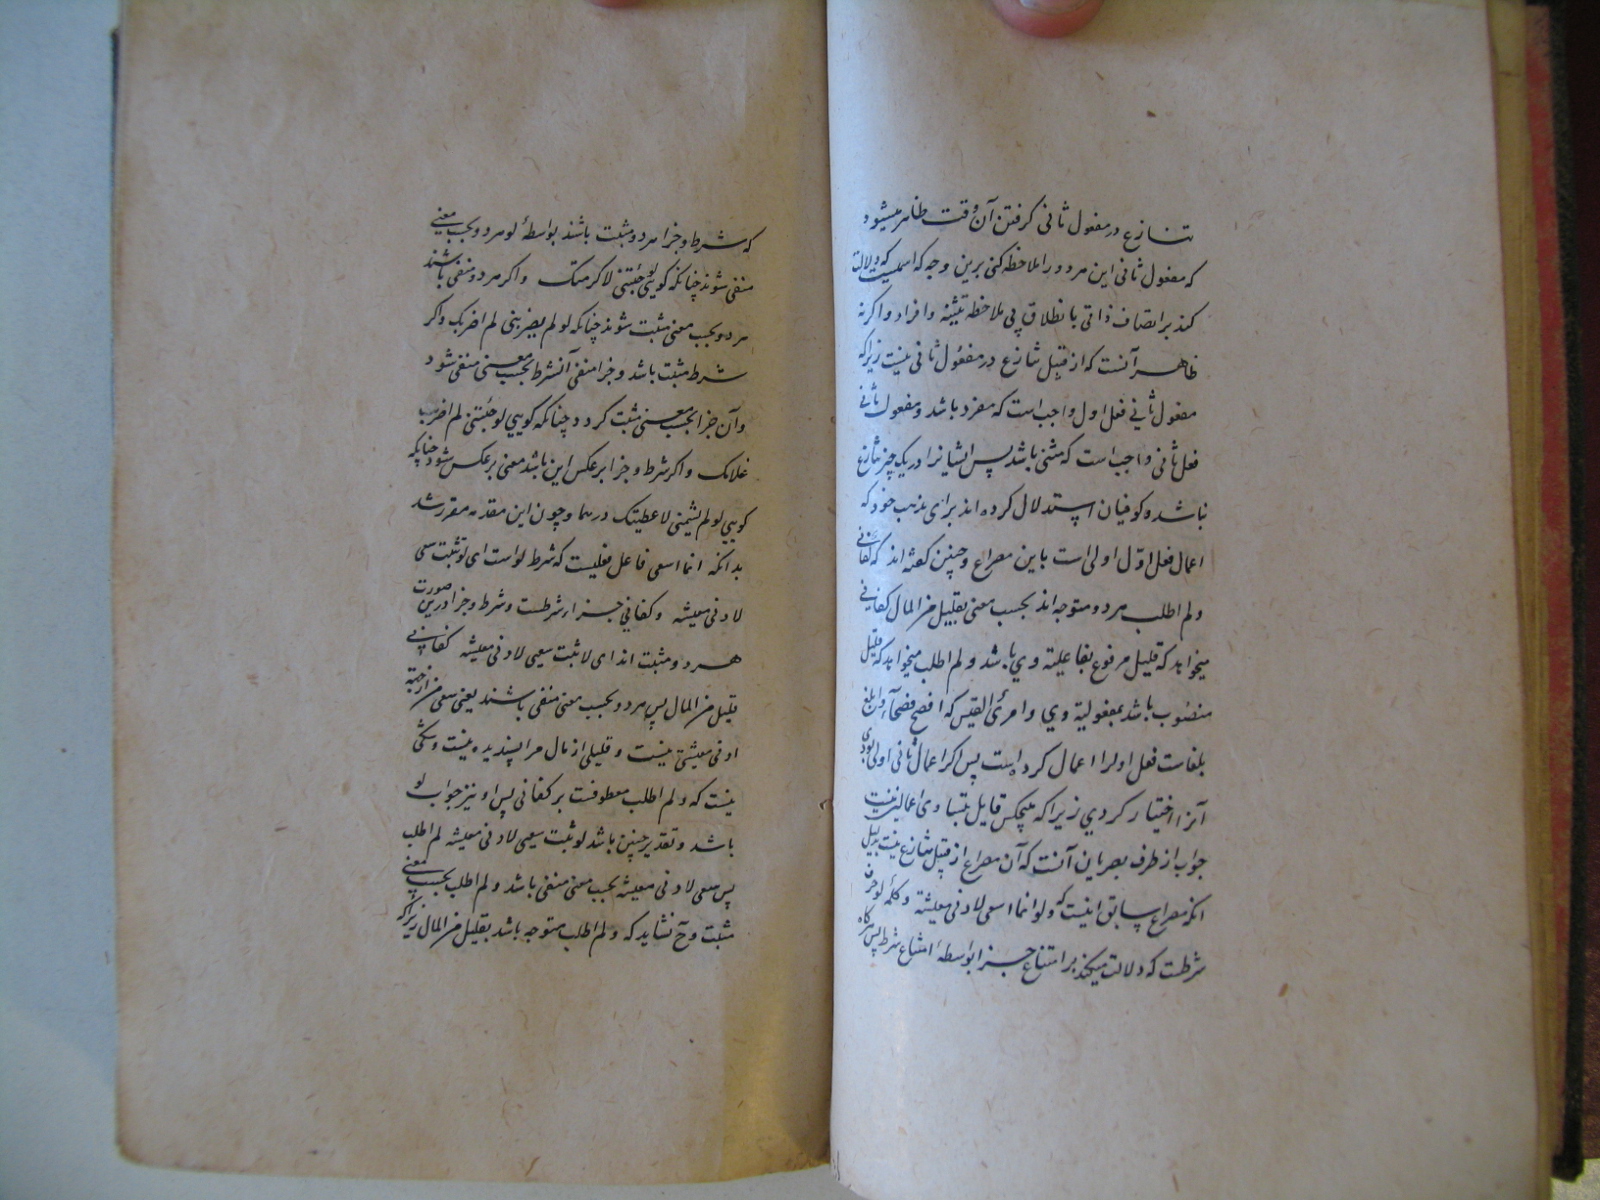 تنازع در مفعول ثانی گرفتن آن وقت ظاهر میشود
که مفعول ثانی این هر دو را ملاحظه کنی برین وجه که اسمیست که دلالت
کند بر اتصاف ذاتی بانطلاق بی ملاحظه تثنیه و افراد و اگر نه
ظاهر آنست که از قبیل تنازع در مفعول ثانی نیست زیرا که
مفعول ثانی فعل اول واجب است که مفرد باشد و مفعول ثانی
فعل ثانی واجب است که مثنی باشد پس ایشانرا در یک چیز تنازع
نباشد و کوفیان استدلال کرده اند برای مذهب خود که
اعمال فعل اول اولی است باین مصراع و چنین گفته اند که کفانی
ولم اطلب هر دو متوجه اند بحسب معنی بقلیل من المال کفانی
میخواهد که قلیل مرفوع بفاعلیة وی باشد و لم اطلب میخواهد که قلیل
منصوب باشد بمفعولیة وی و امرئ القیس که افصح فصحا و ابلغ
بلغاست فعل اول را اعمال کرده است پس اگر اعمال ثانی اولی بودی
آنرا اختیار کردی زیرا که هیچکس قایل بتساوی اعمالین نیست
جواب از طرف بصریان آنست که آن مصراع از قبیل تنازع نیست بدلیل
آنکه مصراع سابق اینست که ولو انما اسعی لادنی معیشة و کلمه لو حرف
شرطست که دلالت میکند بر امتناع جزا بواسطه امتناع شرط پس هر گاه
که شرط و جزا هر دو مثبت باشند بواسطهٔ لو هر دو بحسب معنی
منفی شوند چنانکه گویی لو جئتنی لاکرمتک و اگر هر دو منفی باشند
هر دو بحسب معنی مثبت شوند چنانکه لو لم یضربنی لم اضربک و اگر
شرط مثبت باشد و جزا منفی آنشرط بحسب معنی منفی شود
و آن جزا بحسب معنی مثبت گردد چنانکه گویی لو جئتنی لم اضرب
غلامک و اگر شرط و جزا بر عکس این باشد معنی بر عکس شود چنانکه
گویی لو لم یشتمنی لاعطیتک درهما و چون این مقدمه مقرر شد
بدانکه انما اسعی فاعل فعلیست که شرط لو است ای لو ثبت سعی
لادنی معیشة و کفانی جزاء شرطست و شرط و جزا درین صورت
هر دو مثبت اند ای لو ثبت سعی لادنی معیشة کفانی
قلیل من المال پس هر دو بحسب معنی منفی باشند یعنی سعی من از جهة
ادنی معیشتی نیست و قلیلی از مال مرا پسندیده نیست و شکی
نیست که و لم اطلب معطوفست بر کفانی پس او نیز جواب لو
باشد و تقدیر چنین باشد لو ثبت سعیی لادنی معیشة لم اطلب
پس سعی لادنی معیشة بحسب معنی منفی باشد و لم اطلب بحسب معنی
مثبت و ح نشاید که و لم اطلب متوجه باشد بقلیل من المال زیرا که